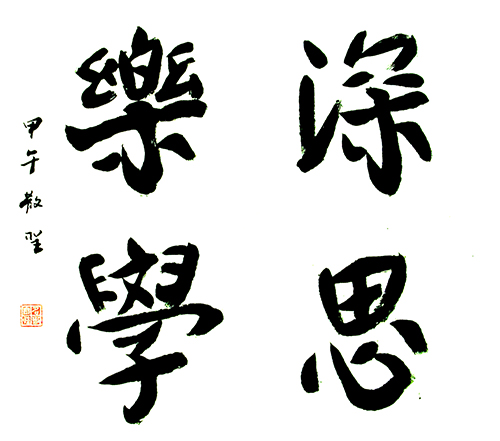 深思
樂學
甲午敬聖